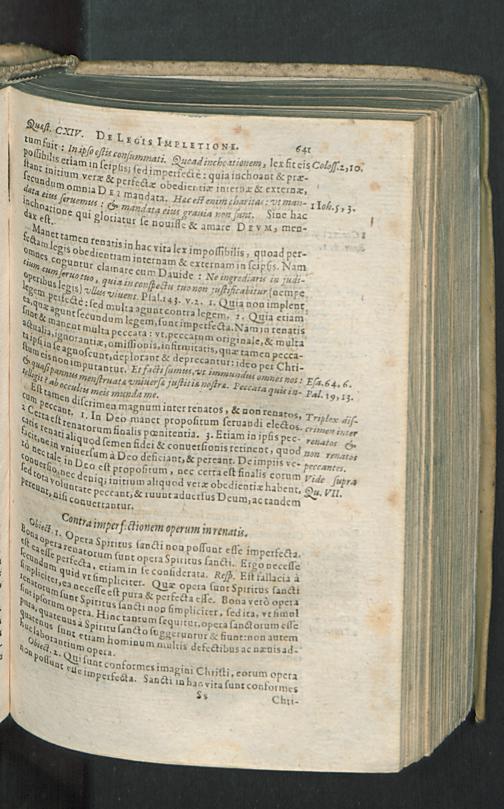 Quæst. CXIV. DE LEGIS IMPLETIONE. 641
tum fuit: In ipso estis consummati. Quoad inchoationem, lex fit eis Coloss. 2, 10.
possibilis etiam in seipsis; sed imperfectè: quia inchoant & præ-
stant initium veræ & perfectæ obedientiæ internæ & externæ,
secundum omnia DEI mandata. Hæc est enim charitas: vt man- 1 Ioh. 5, 3.
data eius seruemus: & mandata eius grauia non sunt. Sine hac
inchoatione qui gloriatur se nouisse & amare DEVM, men-
dax est.
Manet tamen renatis in hac vita lex impossibilis, quoad per-
fectam legis obedientiam internam & externam in seipsis. Nam
omnes coguntur clamare cum Dauide: Ne ingrediaris in judi-
cium cum seruo tuo, quia in conspectu tuo non justificabitur (nempe
operibus legis) vllus viuens. Psal. 143. v. 2. 1. Quia non implent
legem perfectè: sed multa agunt contra legem. 2. Quia etiam
ea, quæ agunt secundum legem, sunt imperfecta. Nam in renatis
sunt & manent multa peccata: vt, peccatum originale, & multa
actualia, ignorantiæ, omissionis, infirmitatis, quæ tamen pecca-
ta ipsi in se agnoscunt, deplorant & deprecantur: ideo per Chri-
stum eis non imputantur. Et facti sumus, vt immundus omnes nos: Esa. 64. 6.
& quasi pannus menstruatæ vniuersæ justitiæ nostræ. Peccata quis in- Psal. 19, 13.
telligit? ab occultis meis munda me.
Est tamen discrimen magnum inter renatos, & non renatos, Triplex dis-
cum peccant. 1. In Deo manet propositum seruandi electos. crimen inter
2 Certa est renatorum finalis pœnitentia. 3. Etiam in ipsis pec- renatos &
catis renati aliquod semen fidei & conversionis retinent, quod non renatos
facit, ne in vniversum à Deo deficiant, & pereant. De impiis ve- peccantes.
rò nec tale in Deo est propositum, nec certa est finalis eorum Vide supra
conversio, nec deniq; initium aliquod veræ obedientiæ habent, Qu. VII.
sed tota voluntate peccant, & ruunt adversus Deum, ac tandem
pereunt, nisi convertantur.
Contra imperfectionem operum in renatis.
Obiect. 1. Opera Spiritus sancti non possunt esse imperfecta.
Bona opera renatorum sunt opera Spiritus sancti. Ergo necesse
est ea esse perfecta, etiam in se considerata. Resp. Est fallacia à
secundum quid vt simpliciter. Quæ opera sunt Spiritus sancti
simpliciter, ea necesse est pura & perfecta esse. Bona verò opera
renatorum sunt Spiritus sancti non simpliciter, sed ita, vt simul
sint ipsorum opera. Hinc tantum sequitur, opera sanctorum esse
pura, quatenus à Spiritu sancto suggeruntur & fiunt: non autem
quatenus sunt etiam hominum multis defectibus ac næuis ad-
huc laborantium opera.
Obiect. 2. Qui sunt conformes imagini Christi, eorum opera
non possunt esse imperfecta. Sancti in hac vita sunt conformes
Ss Chri-